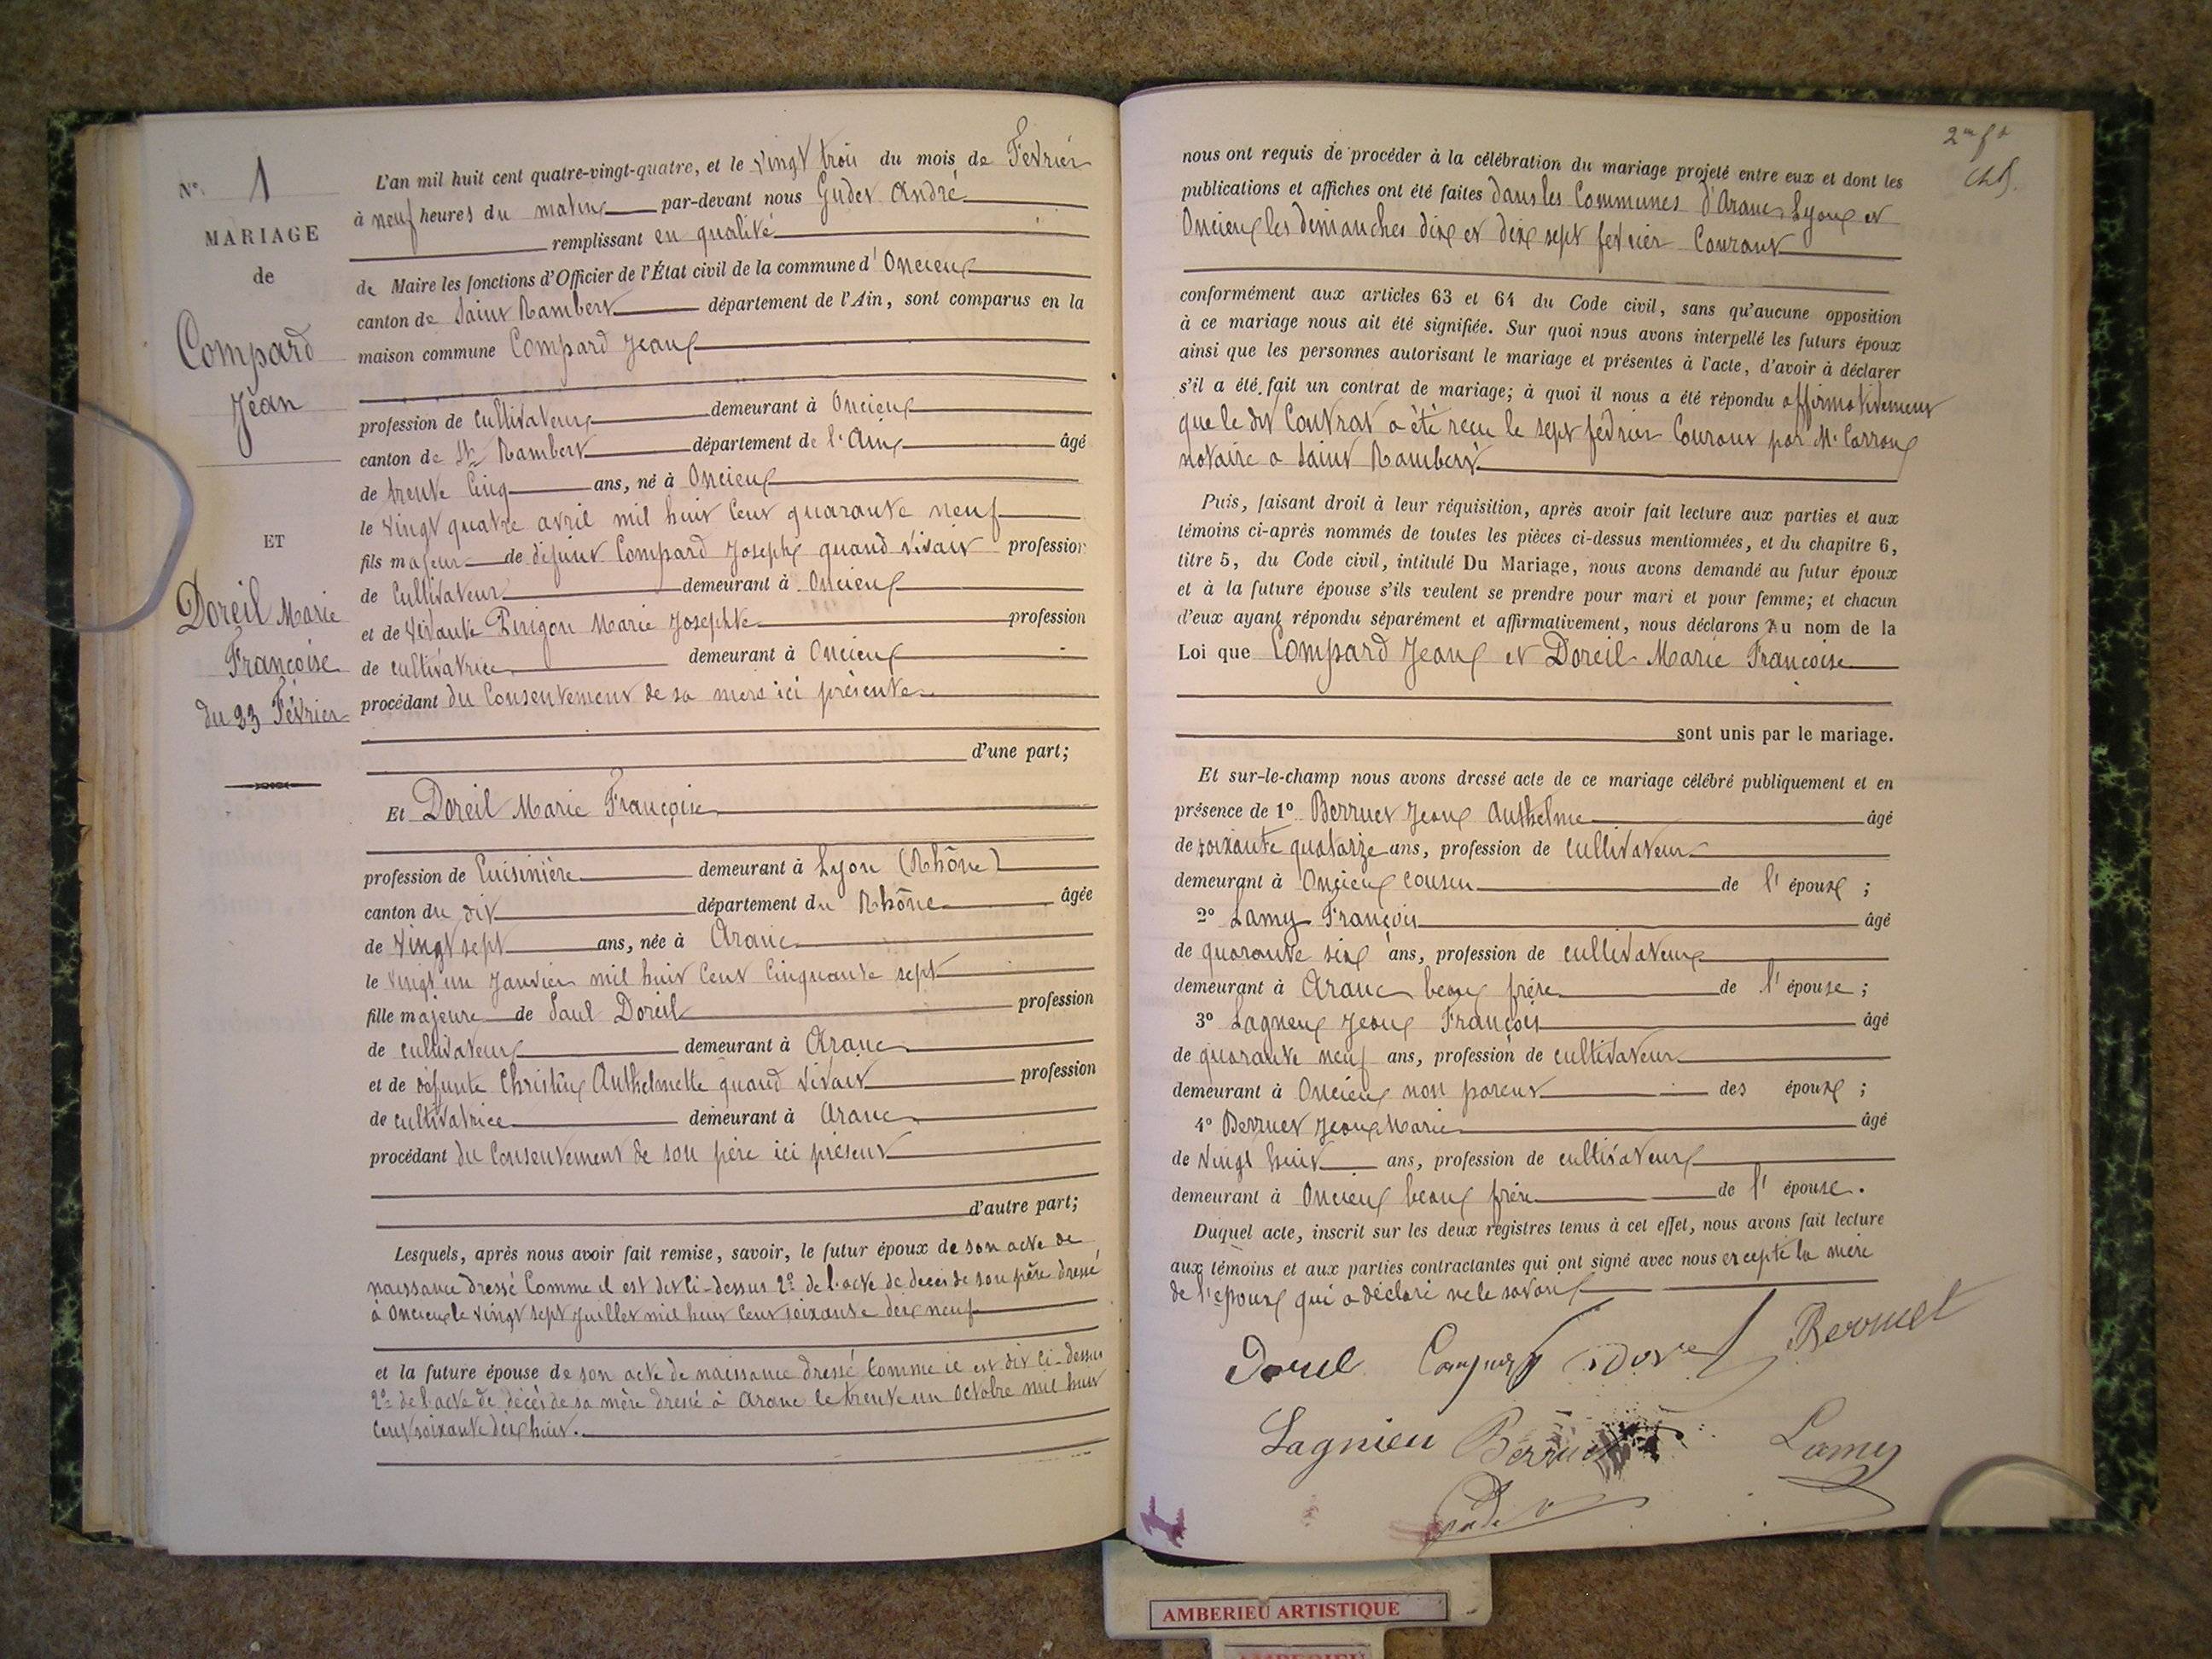 N° 1
MARIAGE
de
Compard
Jean
ET
Doreil Marie
Françoise
du 23 Février
L'an mil huit cent quatre-vingt-quatre, et le vingt trois du mois de Février
à neuf heures du matin par-devant nous Gudet André
remplissant en qualité
de Maire les fonctions d'Officier de l'État civil de la commune d'Oncieux
canton de Saint Rambert département de l'Ain, sont comparus en la
maison commune Compard Jean
profession de cultivateur demeurant à Oncieux
canton de St Rambert département de l'Ain âgé
de trente cinq ans, né à Oncieux
le vingt quatre avril mil huit cent quarante neuf
fils majeur de défunt Compard Joseph quand vivait profession
de cultivateur demeurant à Oncieux
et de vivante Perigon Marie Josephte profession
de cultivatrice demeurant à Oncieux
procédant du consentement de sa mère ici présente
d'une part;
Et Doreil Marie Françoise
profession de Cuisinière demeurant à Lyon (Rhône)
canton du dit département du Rhône âgée
de vingt sept ans, née à Aranc
le vingt un Janvier mil huit cent cinquante sept
fille majeure de Paul Doreil profession
de cultivateur demeurant à Aranc
et de défunte Christin Anthelmette quand vivait profession
de cultivatrice demeurant à Aranc
procédant du consentement de son père ici présent
d'autre part;
Lesquels, après nous avoir fait remise, savoir, le futur époux de son acte de
naissance dressé comme il est dit ci-dessus 2° de l'acte de décès de son père dressé
à Oncieux le vingt sept Juillet mil huit cent soixante dix neuf
et la future épouse de son acte de naissance dressé comme il est dit ci-dessus
2° de l'acte de décès de sa mère dressé à Aranc le trente un octobre mil huit
cent soixante dix huit.
2me f t
nous ont requis de procéder à la célébration du mariage projeté entre eux et dont les
publications et affiches ont été faites dans les Communes d'Aranc Lyon et
Oncieux les dimanches dix et dix sept février courant
conformément aux articles 63 et 64 du Code civil, sans qu'aucune opposition
à ce mariage nous ait été signifiée. Sur quoi nous avons interpellé les futurs époux
ainsi que les personnes autorisant le mariage et présentes à l'acte, d'avoir à déclarer
s'il a été fait un contrat de mariage; à quoi il nous a été répondu affirmativement
que le dit Contrat a été reçu le sept février courant par Me Carron
notaire a Saint Rambert
Puis, faisant droit à leur réquisition, après avoir fait lecture aux parties et aux
témoins ci-après nommés de toutes les pièces ci-dessus mentionnées, et du chapitre 6,
titre 5, du Code civil, intitulé Du Mariage, nous avons demandé au futur époux
et à la future épouse s'ils veulent se prendre pour mari et pour femme; et chacun
d'eux ayant répondu séparément et affirmativement, nous déclarons Au nom de la
Loi que Compard Jean et Doreil Marie Françoise
sont unis par le mariage.
Et sur-le-champ nous avons dressé acte de ce mariage célébré publiquement et en
présence de 1° Berruet Jean Anthelme âgé
de soixante quatorze ans, profession de cultivateur
demeurant à Oncieux cousin de l'époux ;
2° Lamy François âgé
de quarante six ans, profession de cultivateur
demeurant à Aranc beau frère de l'épouse ;
3° Lagneux Jean François âgé
de quarante neuf ans, profession de cultivateur
demeurant à Oncieux non parent des époux ;
4° Berruet Jean Marie âgé
de vingt huit ans, profession de cultivateur
demeurant à Oncieux beau frère de l'épouse.
Duquel acte, inscrit sur les deux registres tenus à cet effet, nous avons fait lecture
aux témoins et aux parties contractantes qui ont signé avec nous excepté la mère
de l'époux qui a déclaré ne le savoir
Doreil Compard Berruet
Lagnieu Berruet Lamy
Gudet
AMBERIEU ARTISTIQUE
AMBERIEU